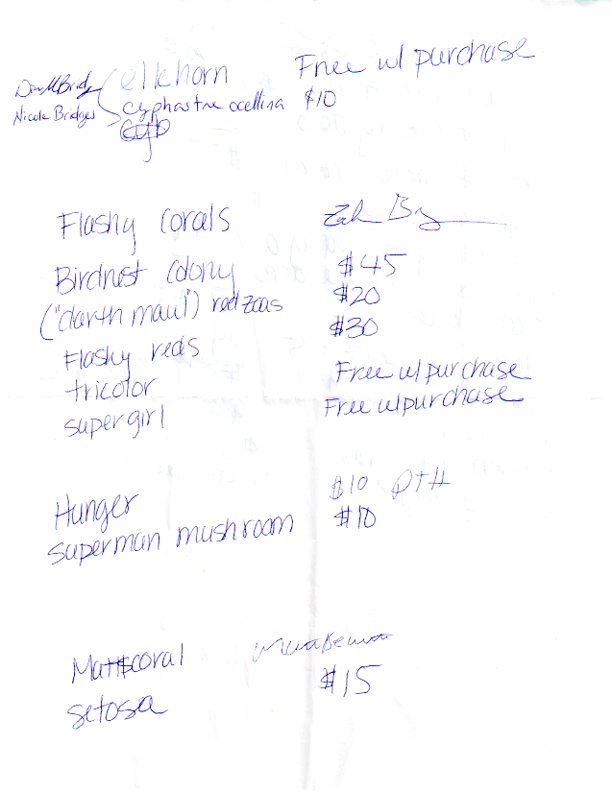 elkhorn Free w/ purchase
Nicole Bridges cyphastrea ocellina $10
Flashy corals
Birdnest colony $45
("darth maul") red zoas $20
Flashy reds $30
tricolor Free w/ purchase
supergirl Free w/ purchase
Hunger $10
superman mushroom $10
Mattscoral
setosa $15